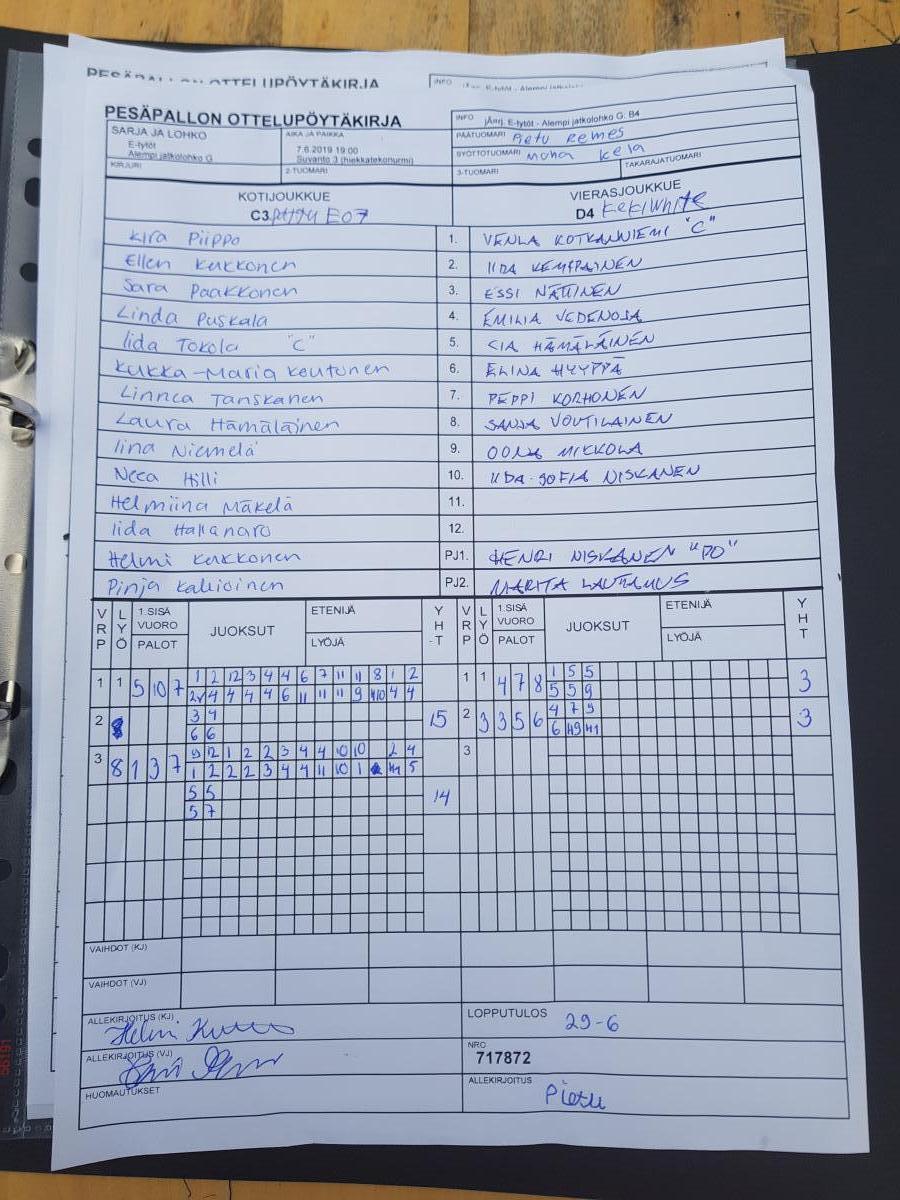 PESÄPALLON OTTELUPÖYTÄKIRJA
INFO
PESÄPALLON OTTELUPÖYTÄKIRJA
INFO jAnrj. E-tytöt - Alempi jatkolohko G: B4
PÄÄTUOMARI Pietu Remes
SARJA JA LOHKO
E-tytöt
Alempi jatkolohko G
AIKA JA PAIKKA
7.6.2019 19:00
Suvanto 3 (hiekkatekonurmi)
SYÖTTÖTUOMARI
KIRJURI
2-TUOMARI
3-TUOMARI
TAKARAJATUOMARI
KOTIJOUKKUE
C3
E07
VIERASJOUKKUE
D4 KeKi White
Kira Piippo 1. VENLA KOTKANNIEMI "C"
Ellen Kukkonen 2. IIDA KEMPPAINEN
Sara Paakkonen 3. ESSI NÄTTINEN
Linda Puskala 4. EMILIA VEDENOJA
Iida Tokola "C" 5. CIA HÄMÄLÄINEN
Kukka-Maria Keutunen 6. ELINA HYYPPÄ
Linnea Tanskanen 7. PEPPI KORHONEN
Laura Hämäläinen 8. SANJA VOUTILAINEN
Iina Niemelä 9. OONA MIKKOLA
Neea Hilli 10. IIDA-SOFIA NISKANEN
Helmiina Mäkelä 11.
Iida 12.
Helmi Kukkonen PJ1. HENRI NISKANEN "PO"
Pinja PJ2. MARITA
VRP LYÖ 1.SISÄ VUORO PALOT JUOKSUT ETENIJÄ LYÖJÄ YHT VRP LYÖ 1.SISÄ VUORO PALOT JUOKSUT ETENIJÄ LYÖJÄ YHT
1 1 5 10 7 1 2 12 3 4 4 6 7 11 11 8 1 2 1 1 4 7 8 1 5 5 3
4 4 4 4 6 11 11 11 9 4 4 5 5 9
2 3 4 15 2 3 3 5 6 4 7 9 3
6 6 6
3 8 1 3 7 9 12 1 2 2 3 4 4 10 10 2 4 3
1 2 2 2 3 4 4 11 10 1 5
5 5 14
5 7
VAIHDOT (KJ)
VAIHDOT (VJ)
ALLEKIRJOITUS (KJ)
LOPPUTULOS 29-6
ALLEKIRJOITUS (VJ)
NRO
717872
HUOMAUTUKSET
ALLEKIRJOITUS Pietu